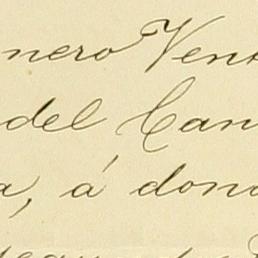 nero Vene
del Can
a, á dond